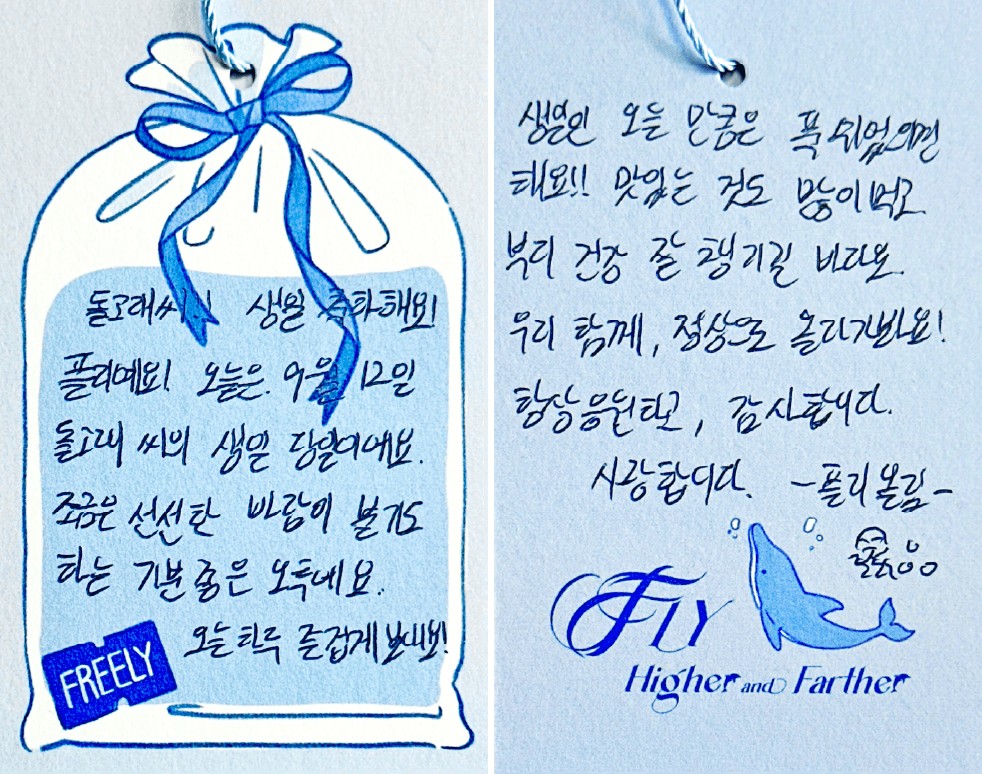 돌고래씨! 생일 축하해요!
플리예요! 오늘은 9월 12일
돌고래 씨의 생일 당일이네요.
조금은 선선한 바람이 불기도
하는 기분 좋은 오후네요.
오늘 하루 즐겁게 보내요!
FREELY
생일인 오늘 만큼은 푹 쉬었으면
해요!! 맛있는 것도 많이 먹고
부디 건강 잘 챙기길 바라요.
우리 함께, 정상으로 올라가봐요!
항상 응원하고, 감사합니다.
사랑합니다. -플리 올림-
FLY
Higher and Farther